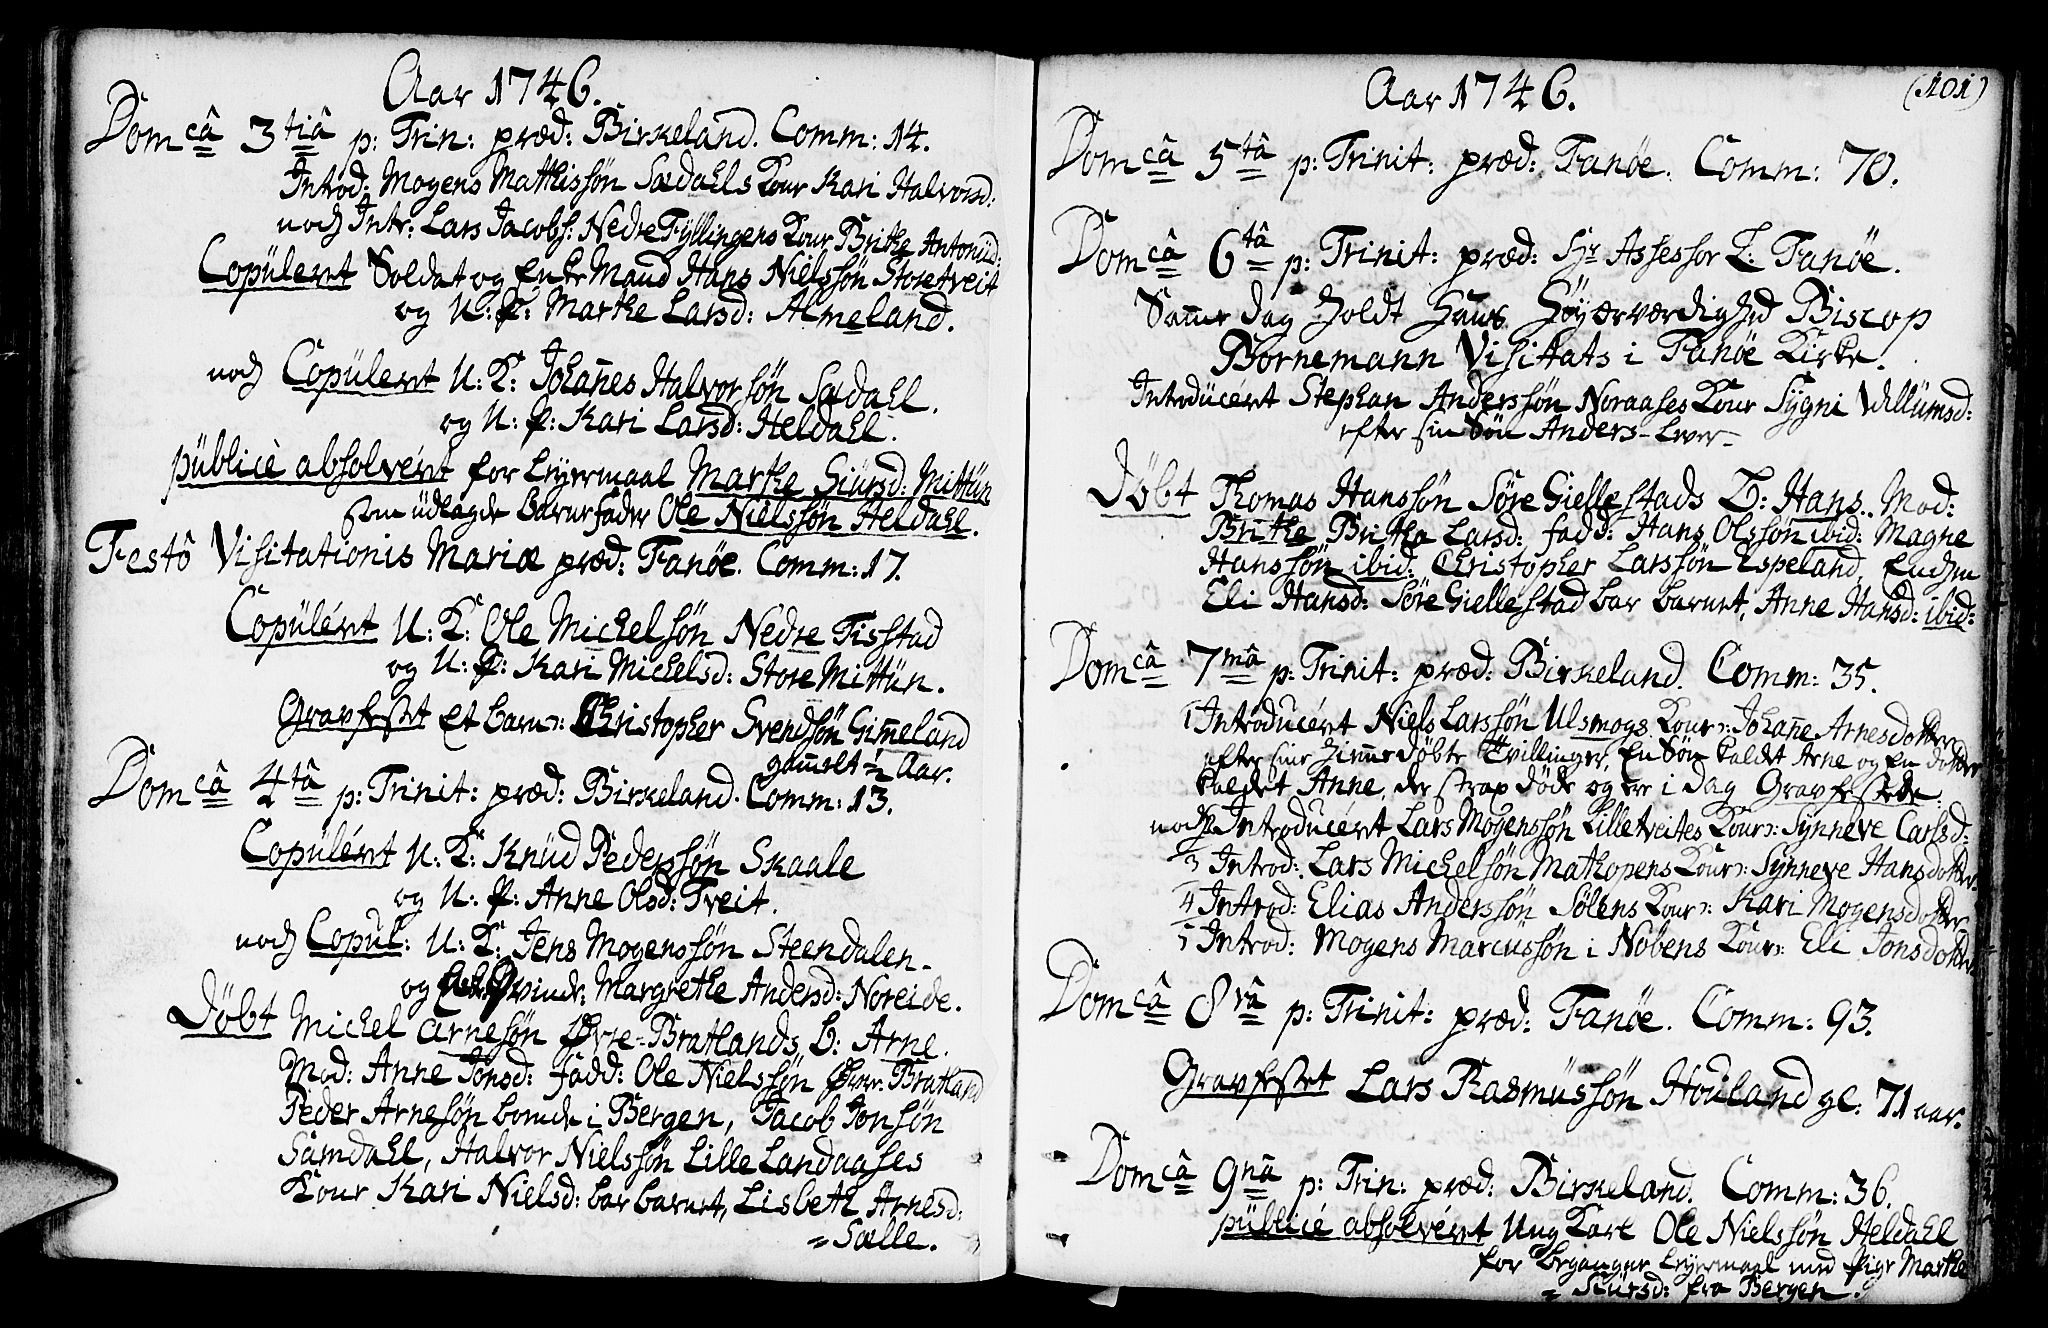 Aar 1746.
Dom câ 3 tiâ p: Trin: præd: Birkeland. Comm: 14.
Introd: Mogens Mathissøn Sædahls Kone Kari Halvorsd:
noch Intr: Lars Jacobs: Nedre Tyllingens Kone Brithe Antonüd:
Copülert Soldat og Enke Mand Hans Nielssøn Storetveit
og U: P: Marthe Larsd: Almeland.
noch Copülert U: K: Johañes Halvorssøn Sædahl.
og U: P: Kari Larsd: Heldahl.
püblicè absolvért for Leyermaal Marthe Siürsd: Mittün
som üdlagde Barnefader Ole Nielssøn Heldahl.
Festô Visitationis Mariæ præd: Fanøe. Comm: 17.
Copülért U: K: Ole Michelsøn Nedre Tisstad
og U: P: Kari Michelsd: Store Mittün.
Gravfestet et barn: Christopher Svendsøn Gim̃eland
gam̃elt ½ Aar.
Dom câ 4 tâ p: Trinit: præd: Birkeland. Comm: 13.
Copülért U: K: Knüd Pederssøn Skaale
og U: P: Anne Olsd: Tveit.
noch Copul: U: K: Jens Mogenssøn Steendalen
og Qvinde: Margrethe Andersd: Noreide.
Døbt Michel Arnesøn Øvre-Bratlands B: Arne.
Mod: Anne Jonsd: Fadd: Ole Nielssøn Øvre Bratland
Peder Arnesøn boende i Bergen, Jacob Jonsøn
Sämdahl, Halvor Nielssøn Lille Landaases
Kone Kari Nielsd: bar barnet, Lisbeth Arnesd:
= Sælle.
Aar 1746.
(101)
Dom câ 5 tâ p: Trinit: præd: Fanøe. Comm: 70.
Dom câ 6 tâ p: Trinit: præd: Hr Assessor L: Fanøe.
Sam̃e dag holdt Hans Høyærværdighed Biscop
Bornemann Visitats i Fanøe Kirke.
Introdücért Stephan Anderssøn Noraases Kone Sygni Villümsd:
efter sin Søn Anders
Døbt Thomas Hanssøn Søre Giellestads B: Hans. Mod:
Brithe Britha Larsd: fadd: Hans Olssøn ibid: Magne
Hanssøn ibid: Christopher Larssøn Espeland,
Eli Hansd: Søre Giellestad bar barnet, Anne Hansd: ibid:
Dom câ 7 mâ p: Trinit: præd: Birkeland. Comm: 35.
1 Introducért Niels Larssøn Ulsmogs Kone: Johañe Arnesdotter
efter sine hiem̃e døbte Tvillinger, en Søn kaldet Arne og en Dotter
kaldet Anne, der strax døde og ere i dag Gravfestede.
noch 2 Introducért Lars Mogenssøn Lilletveites Kone: Synneve Carlsd:
3 Introd: Lars Michelsøn Mathopens Kone: Synneve Hansdotter
4 Introd: Elias Anderssøn Sølens Kone: Kari Mogensdotter
5 Introd: Mogens Marcussøn i Nøbens Kone: Eli Jonsdotter
Dom câ 8 vâ p: Trinit: præd: Fanøe. Comm: 93.
Gravfestet Lars Rasmüssøn Houland gl: 71 aar.
Dom câ 9 nâ p: Trin: præd: Birkeland. Comm: 36.
püblicé absolvért Ung Karl Ole Nielssøn Heldahl
for begangne Leyermaal med Pige Marthe
= Siürsd: fra Bergen.